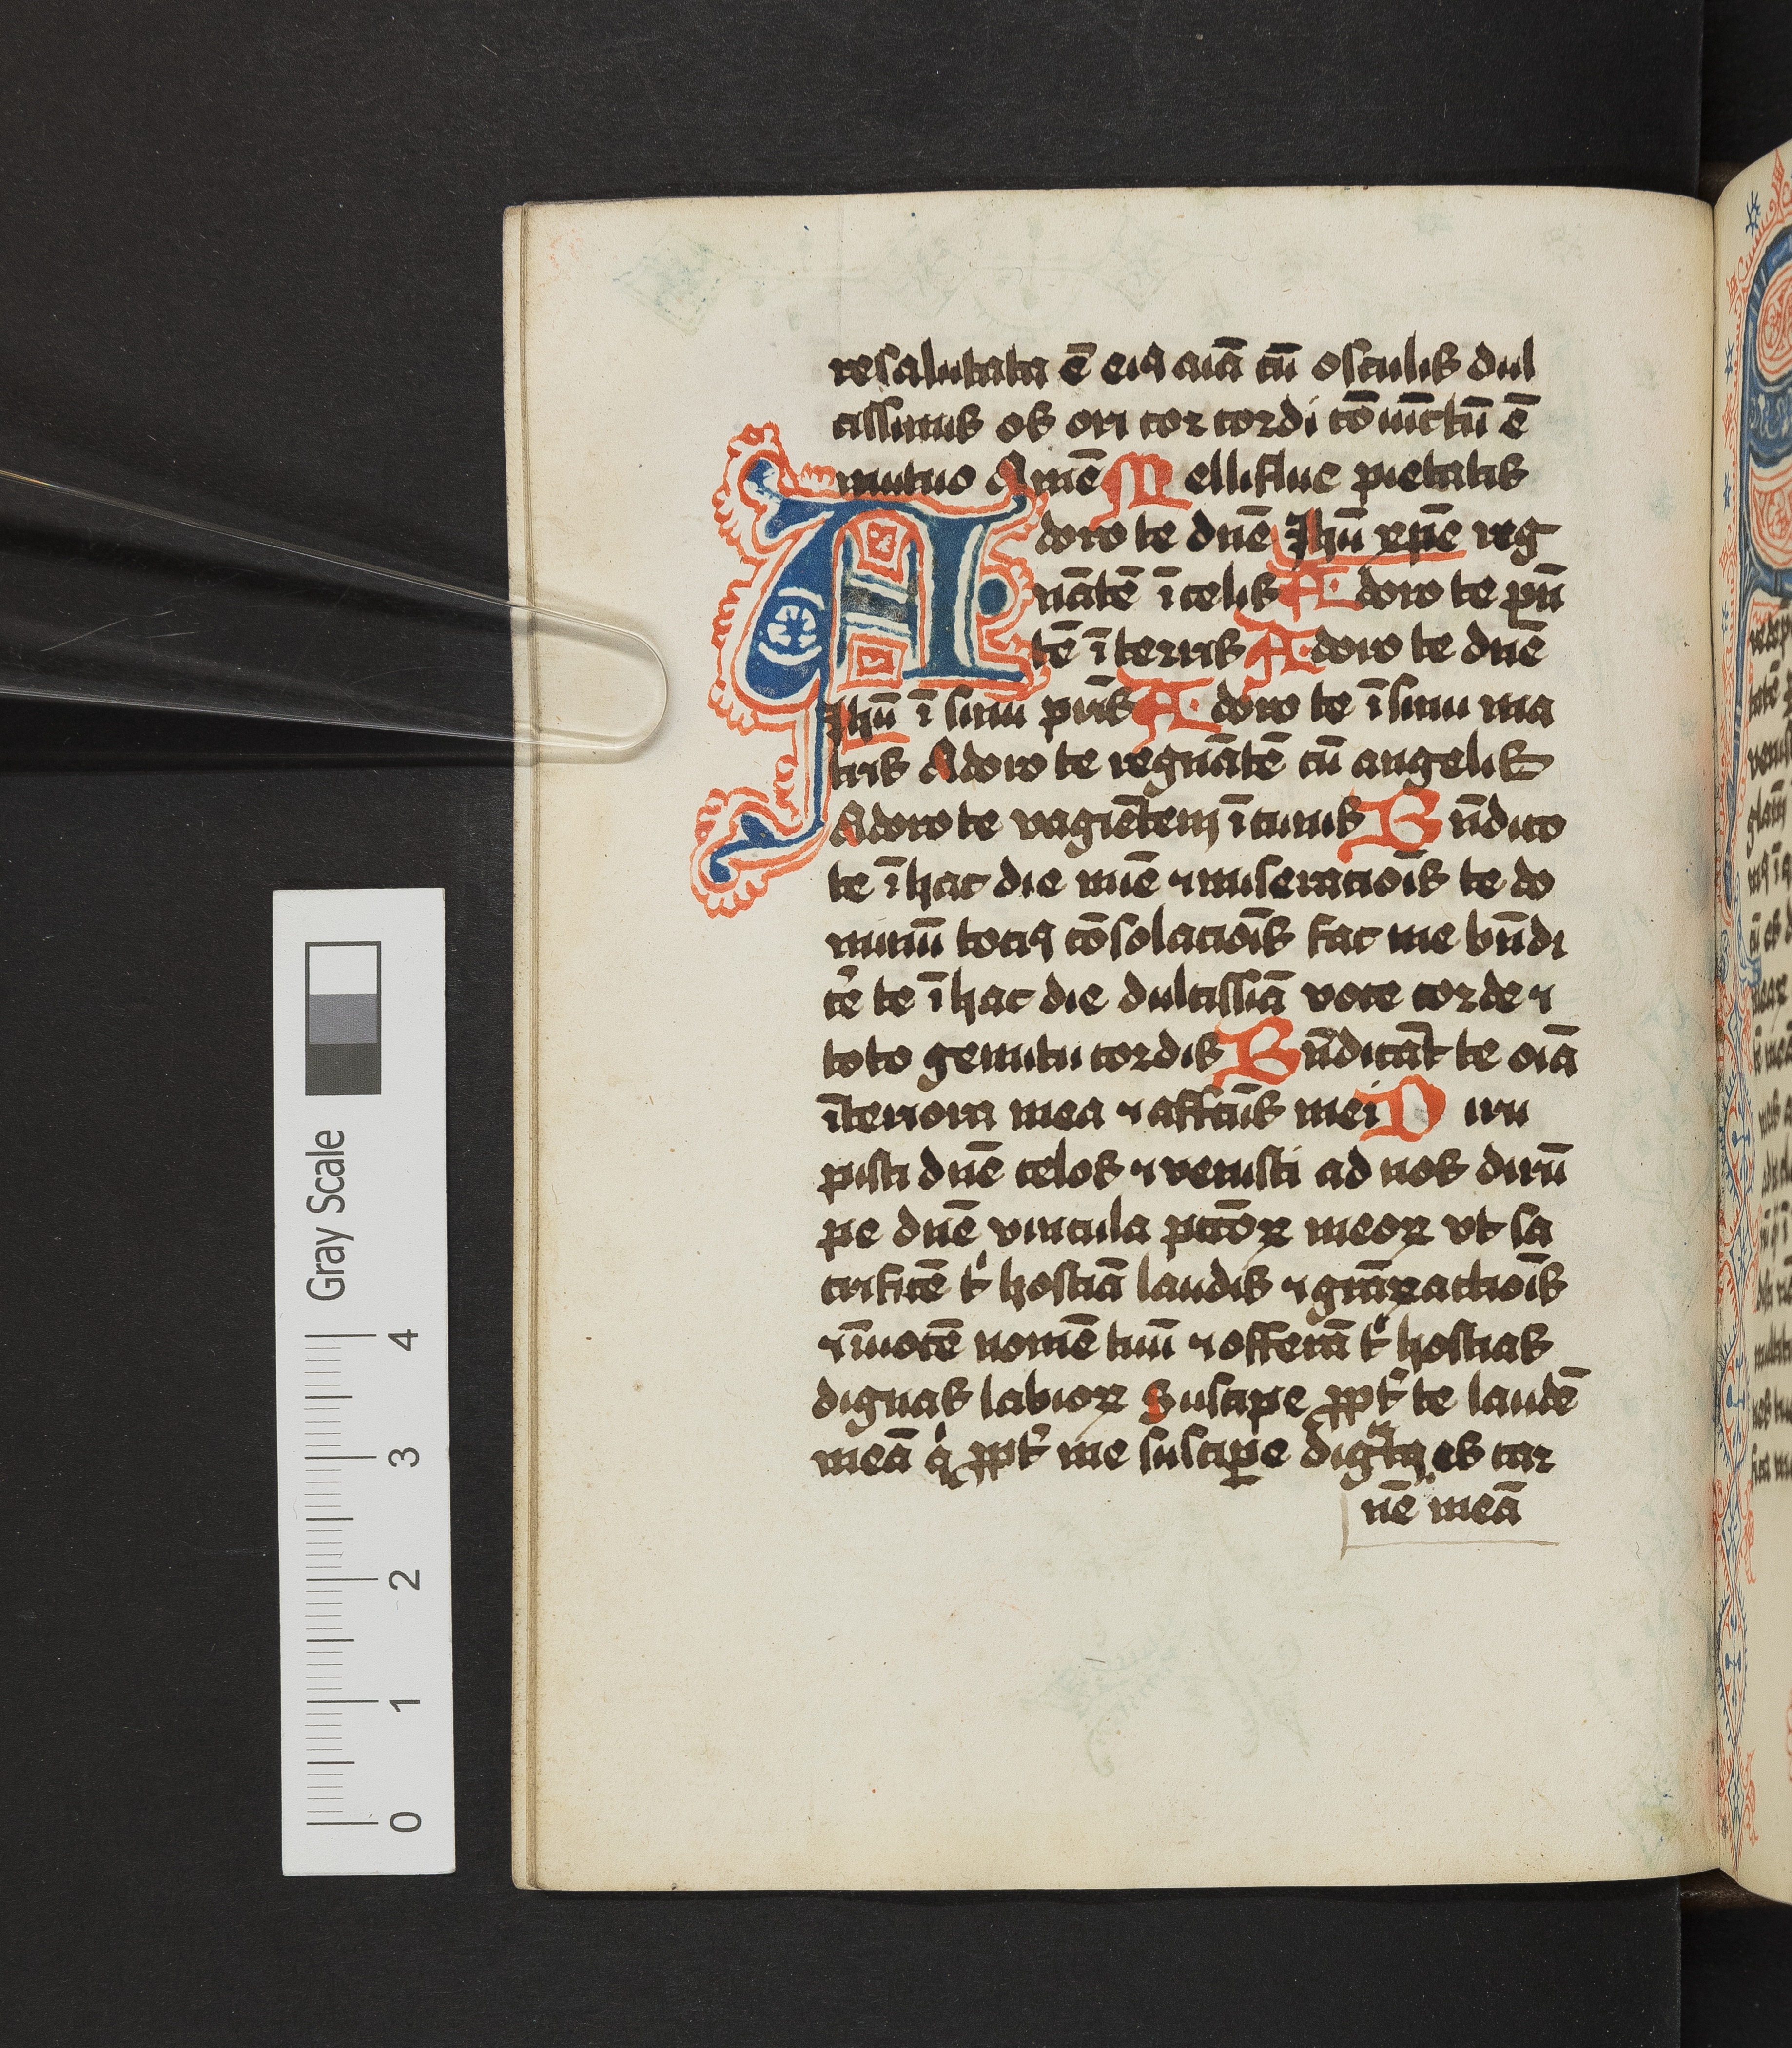 resalutata ē eiꝰ aīa cū osculis dul
cissimis os ori cor cordi cōiūctū ē
mutuo Amē Melliflue pietatis
Adoro te dn̄e Jhū xp̄e reg
nātē ī celis Adoro te p̄n
tē ī terris Adoro te dn̄e
Jhū ī sinu pr̄is Adoro te ī sinu ma
tris Adoro te regnātē cū angelis
Adoro te vagiētem ī cunis Bn̄dico
te ī hac die mīe ⁊ miseraciōis te do
minū tociꝰ cōsolaciōis fac me bn̄di
cē te ī hac die dulcissīa voce corde ⁊
toto gemitu cordis Bn̄dicāt te oīa
īteriora mea ⁊ affcūs mei Diru
pisti dn̄e celos ⁊ venisti ad nos dirū
pe dn̄e vincula pccōꝝ meoꝝ vt sa
crificē tⁱ hostiā laudis ⁊ grāꝝ actiōis
⁊ īuocē nomē tuū ⁊ offerā tⁱ hostias
dignas labioꝝ Suscipe ꝓpt̄ te laudē
meā qⁱ ꝓpt̄ me suscipe digᵃtꝰ es car
nē meā
Gray Scale
4
3
2
1
0